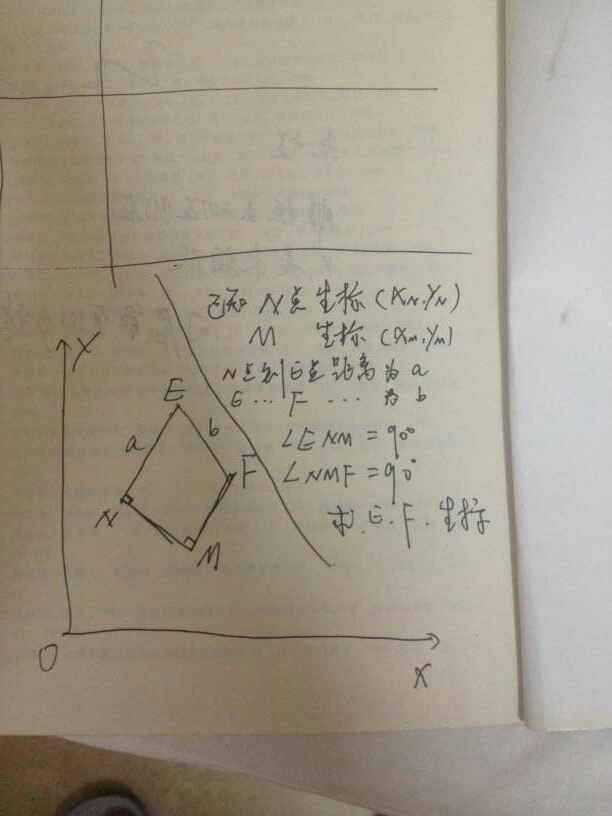 已知 N点 坐标 (XN,YN)
M 坐标 (XM,YM)
N点到E点距离为 a
E ... F ... 为 b
∠ENM = 90°
∠NMF = 90°
求 E.F.坐标
Y
E
a
b
F
N
M
O
X